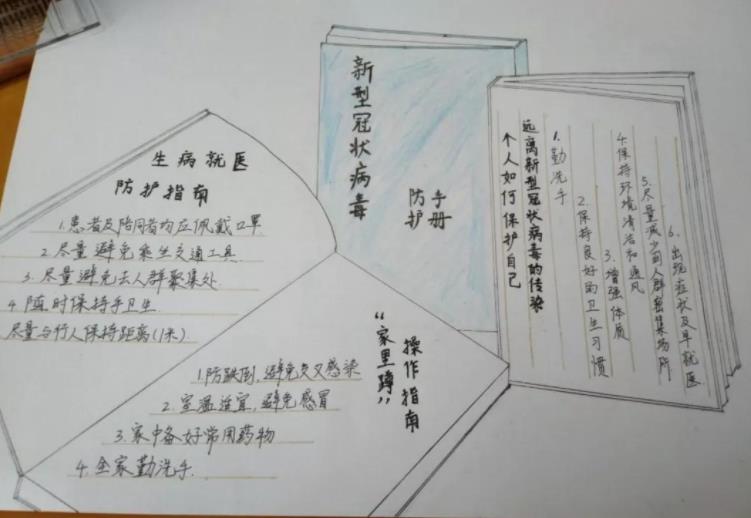 新型冠状病毒
防护
手册
生病就医
防护指南
1.患者及陪同者均应佩戴口罩
2.尽量避免乘坐交通工具
3.尽量避免去人群聚集处
4.随时保持手卫生
尽量与行人保持距离(1米)
个人如何保护自己
远离新型冠状病毒的传染
1.勤洗手
2.保持良好的卫生习惯
3.增强体质
4.保持环境清洁和通风
5.尽量减少到人群密集场所
6.出现症状及早就医
“家里蹲”
操作指南
1.防跌倒,避免交叉感染
2.室温适宜,避免感冒
3.家中备好常用药物
4.全家勤洗手.